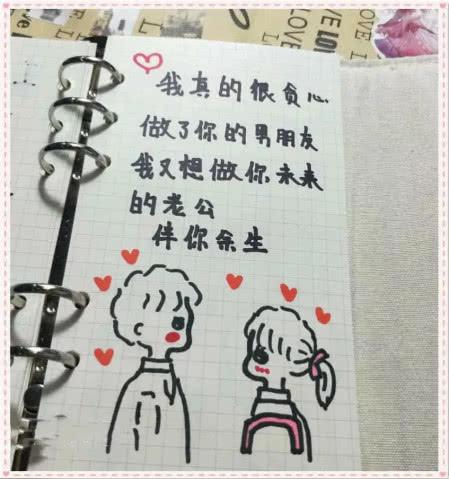 LOVE
LOVE
LOVE
我真的很贪心
做了你的男朋友
我又想做你未来
的老公
伴你余生